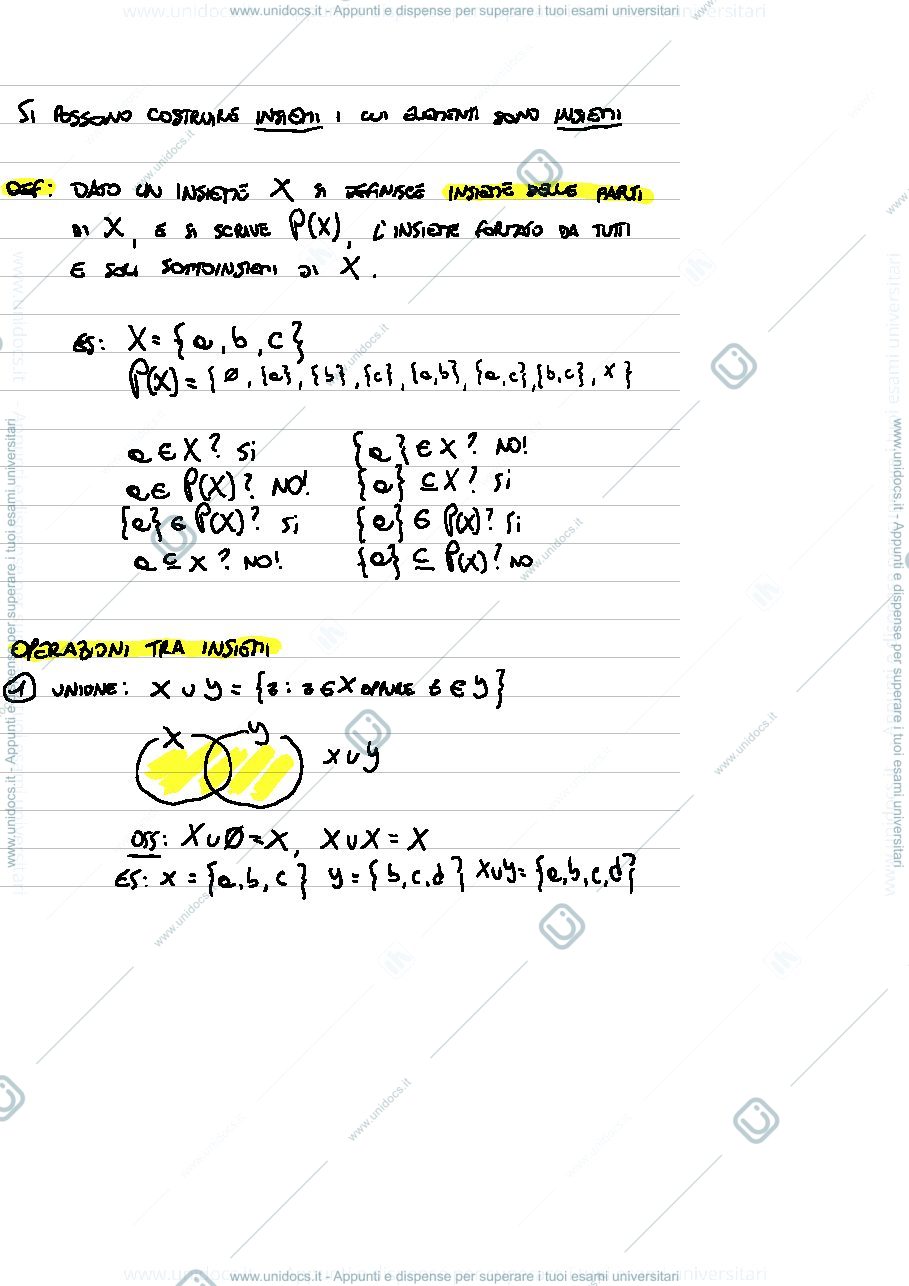 www.unidocs.it - Appunti e dispense per superare i tuoi esami universitari
SI POSSONO COSTRUIRE INSIEMI I CUI ELEMENTI SONO INSIEMI
DEF: DATO UN INSIEME X SI DEFINISCE INSIEME DELLE PARTI
DI X, E SI SCRIVE P(X), L'INSIEME FORMATO DA TUTTI
E SOLI SOTTOINSIEMI DI X.
ES: X = {a, b, c}
P(X) = {∅, {a}, {b}, {c}, {a,b}, {a,c}, {b,c}, X}
a ∈ X? SI {a} ∈ X? NO!
a ∈ P(X)? NO! {a} ⊆ X? SI
{a} ∈ P(X)? SI {a} ∈ P(X)? SI
a ⊆ X? NO! {a} ⊆ P(X)? NO
OPERAZIONI TRA INSIEMI
1 UNIONE: X ∪ Y = {z : z ∈ X OPPURE z ∈ Y}
X Y
X ∪ Y
OSS: X ∪ ∅ = X, X ∪ X = X
ES: X = {a, b, c} Y = {b, c, d} X∪Y = {a, b, c, d}
www.unidocs.it - Appunti e dispense per superare i tuoi esami universitari
www.unidocs.it - Appunti e dispense per superare i tuoi esami universitari
www.unidocs.it - Appunti e dispense per superare i tuoi esami universitari
www.unidocs.it
www.unidocs.it
www.unidocs.it
www.unidocs.it
www.unidocs.it
www.unidocs.it